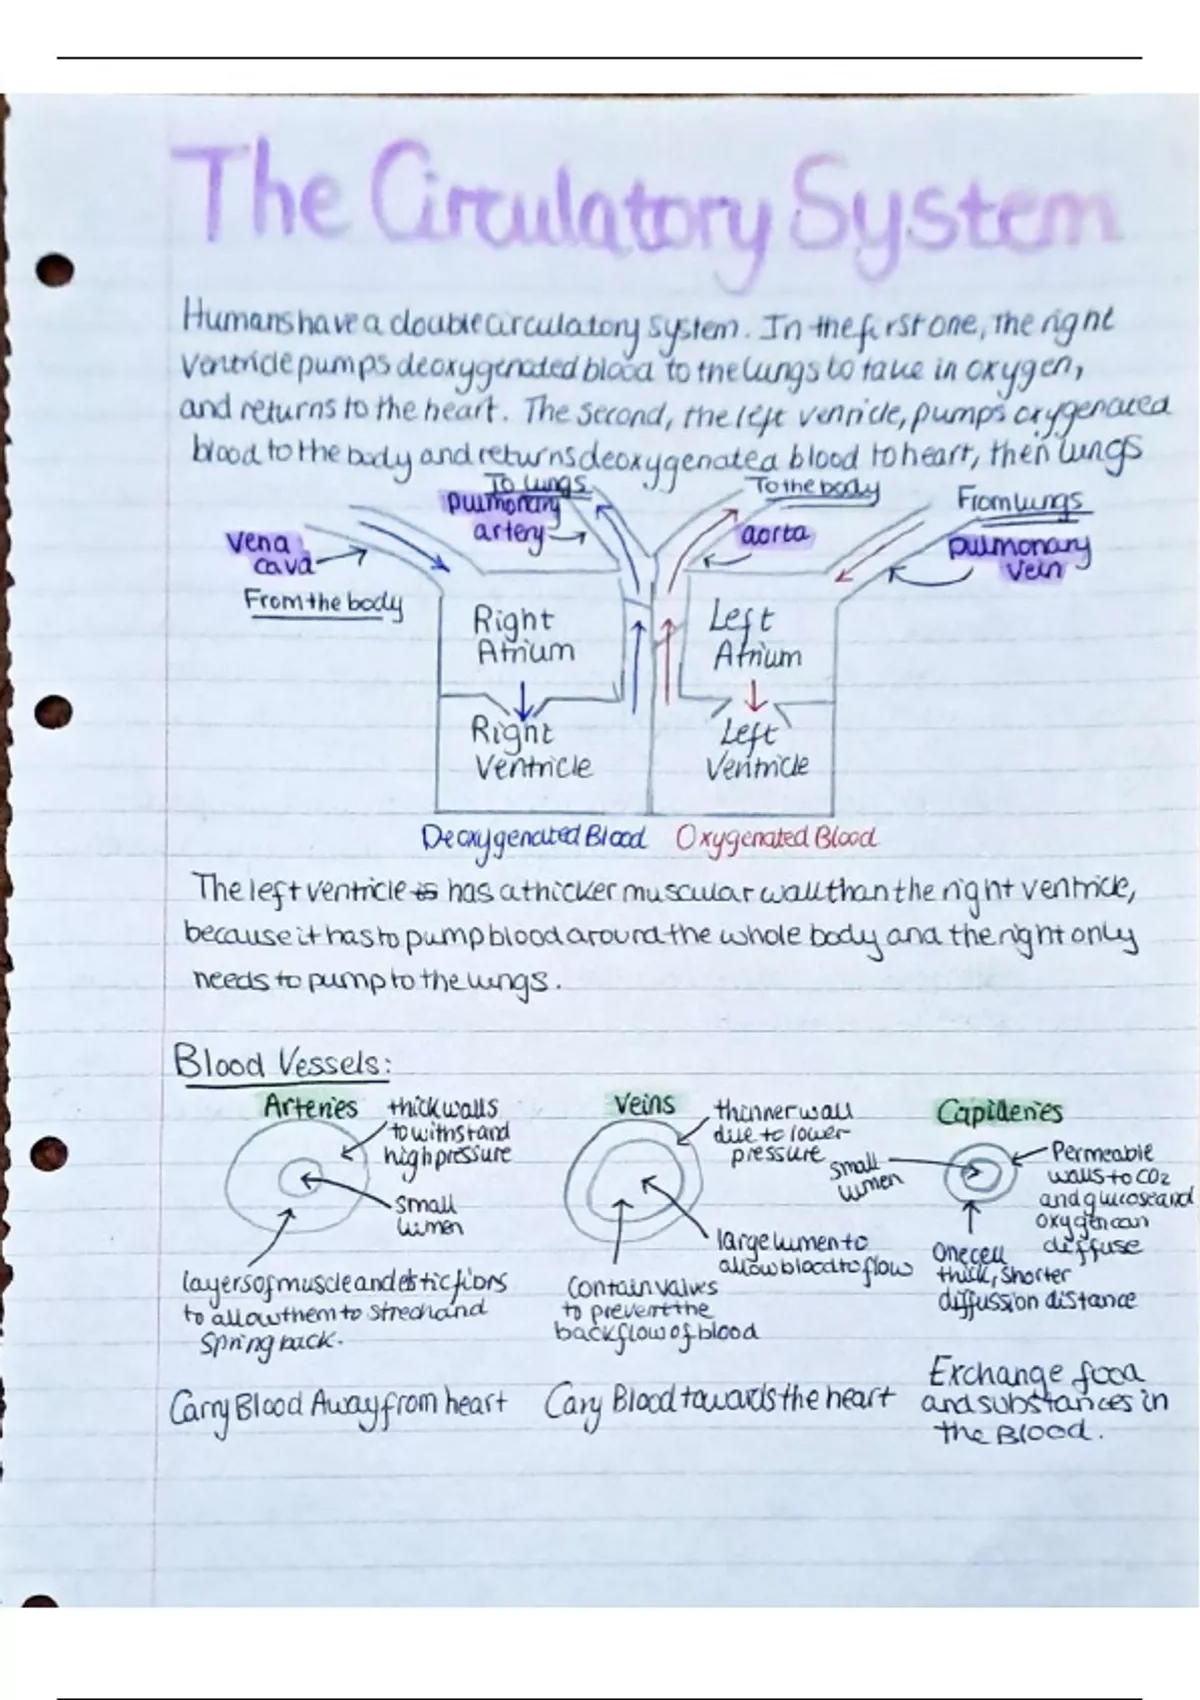 The Circulatory System
Humans have a double circulatory system. In the first one, the right
ventricle pumps deoxygenated blood to the lungs to take in oxygen,
and returns to the heart. The second, the left ventricle, pumps oxygenated
blood to the body and returns deoxygenated blood to heart, then lungs
To lungs
pulmonary
artery
To the body
aorta
From lungs
pulmonary
vein
vena
cava
From the body
Right
Atrium
Left
Atrium
Right
Ventricle
Left
Ventricle
Deoxygenated Blood Oxygenated Blood
The left ventricle is has a thicker muscular wall than the right ventricle,
because it has to pump blood around the whole body and the right only
needs to pump to the lungs.
Blood Vessels:
Arteries
thick walls
to withstand
high pressure
small
lumen
layers of muscle and elastic fibrs
to allow them to strech and
spring back.
Carry Blood Away from heart
Veins
thinner wall
due to lower
pressure
large lumen to
allow blood to flow
Contain valves
to prevent the
backflow of blood
Cary Blood towards the heart
Capilleries
small
lumen
Permeable
walls to CO2
and glucose and
oxygen can
diffuse
One cell
thick, shorter
diffussion distance
Exchange food
and substances in
the Blood.